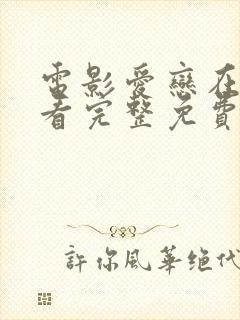 電影愛戀在
看完整免費
許你風華绝代